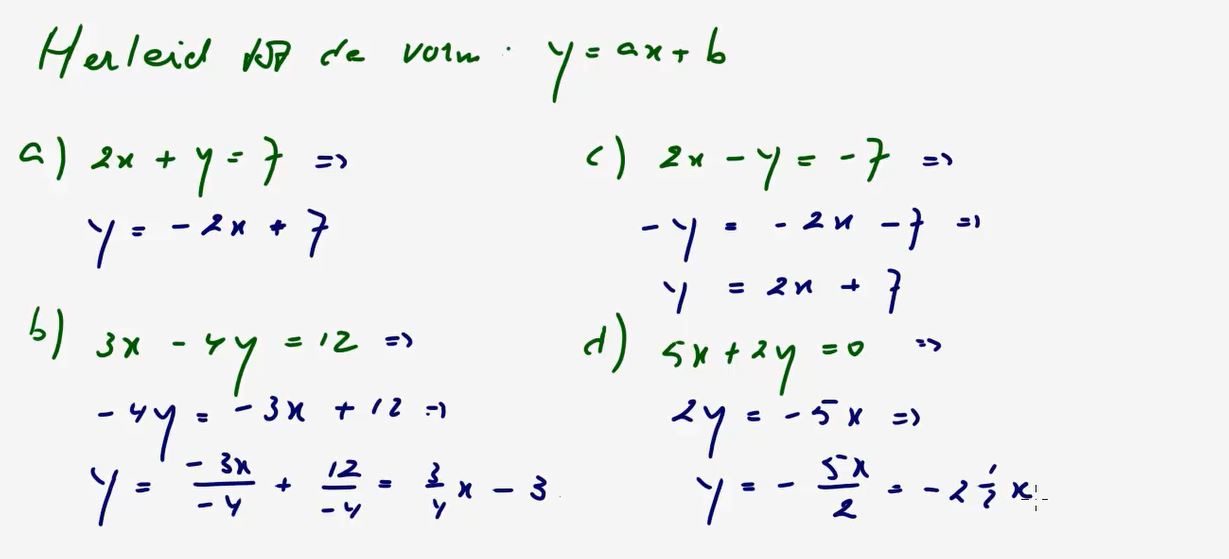 Herleid tot de vorm : y = ax + b
a) 2x + y = 7 =>
y = -2x + 7
b) 3x - 4y = 12 =>
-4y = -3x + 12 =>
y = -3x/-4 + 12/-4 = 3/4 x - 3
c) 2x - y = -7 =>
-y = -2x - 7 =>
y = 2x + 7
d) 5x + 2y = 0 =>
2y = -5x =>
y = - 5x/2 = -2 1/2 x